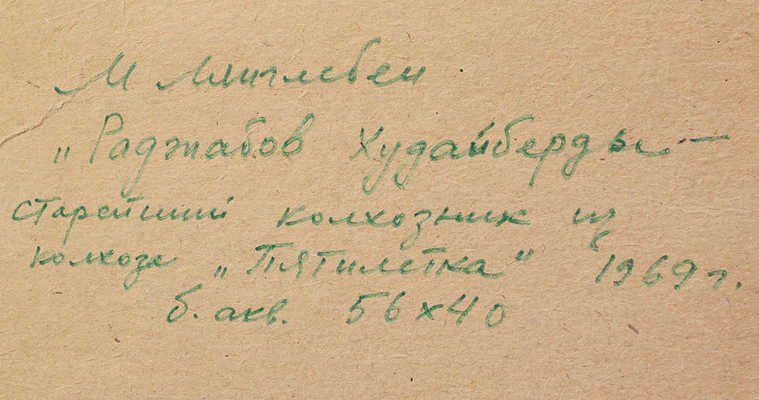 М Лянглебен
„Раджабов Худайберды —
старейший колхозник из
колхоза „Пятилетка“ 1969 г.
б. акв. 56х40